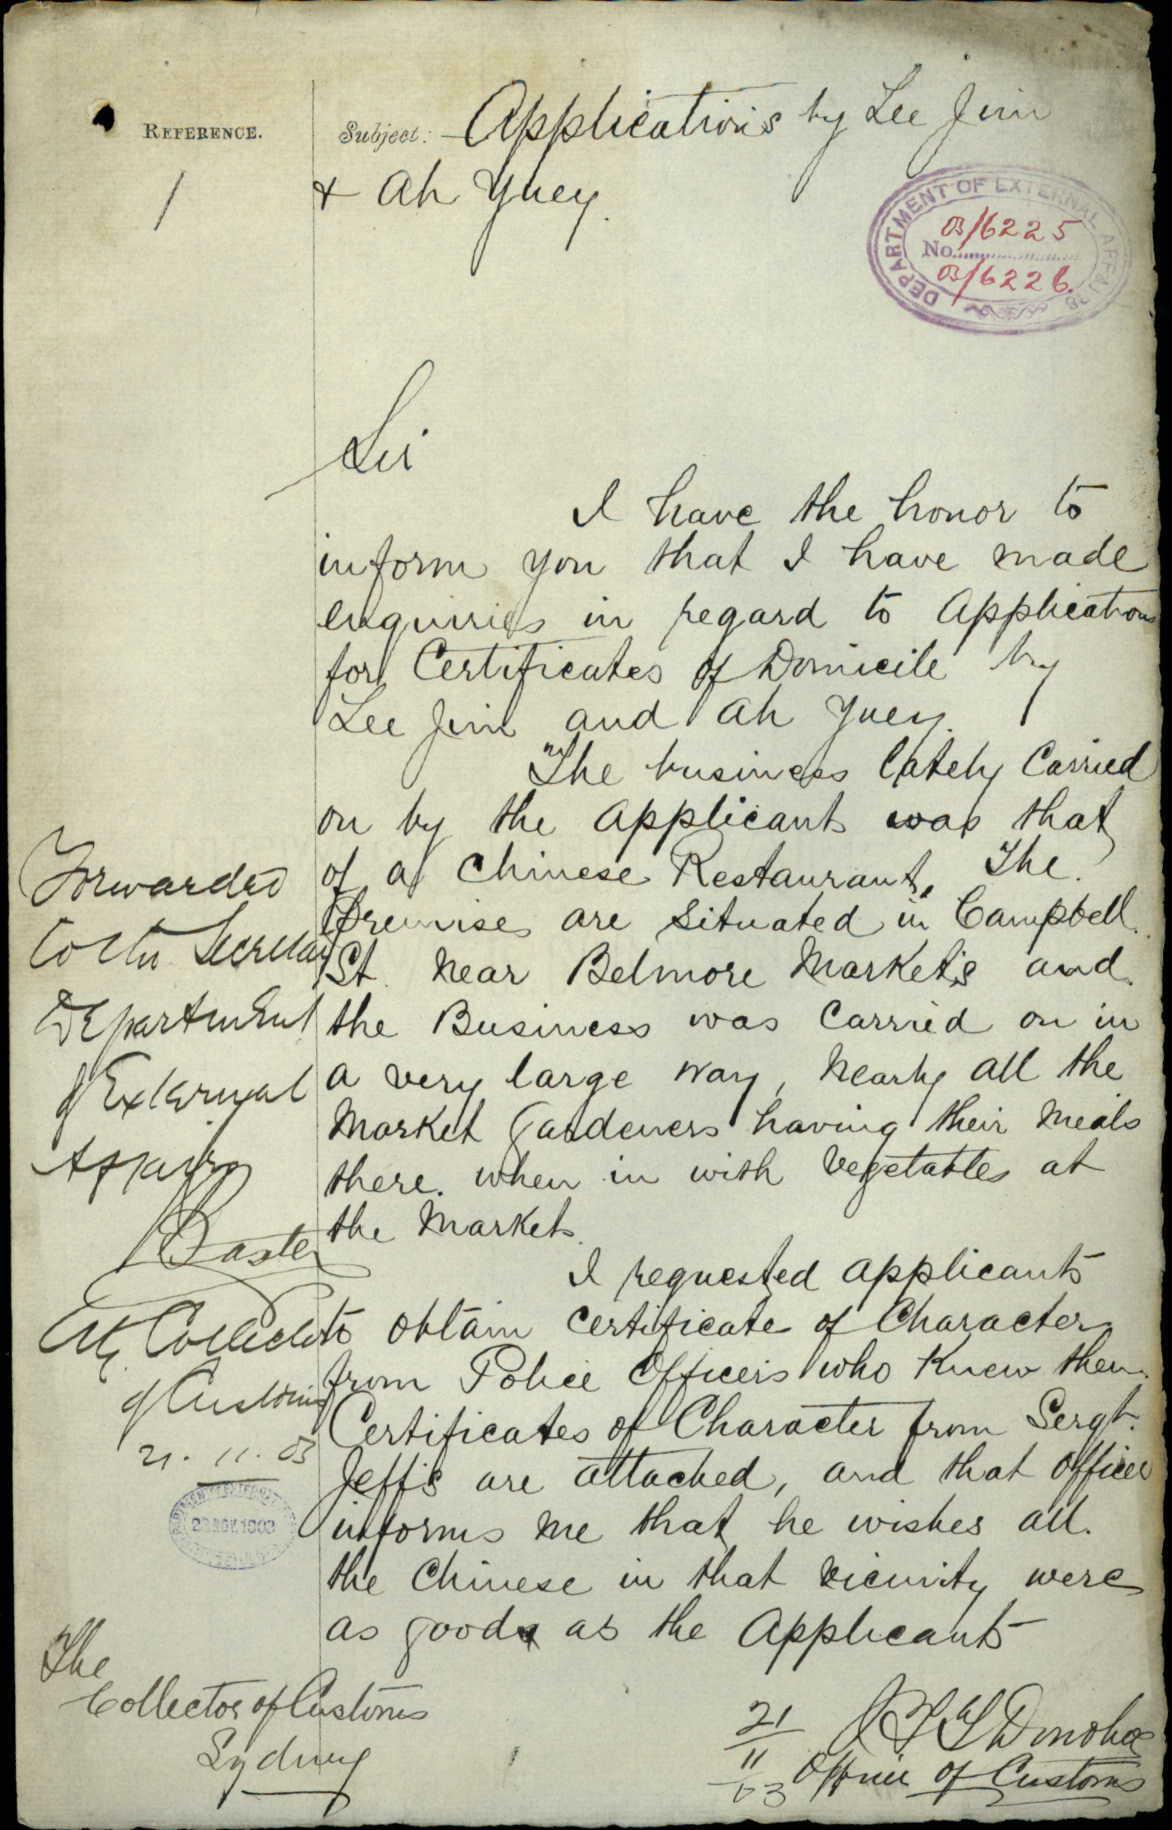 REFERENCE.
1
Subject: Applications by Lee Jim
+ Ah Yuey.
DEPARTMENT OF EXTERNAL AFFAIRS
03/6225
No.
03/6226.
Sir
I have the honor to
inform you that I have made
enquiries in regard to Applications
for Certificates of Domicile by
Lee Jim and Ah Yuey.
The business lately Carried
on by the applicants was that
of a Chinese Restaurant, The
Premises are situated in Campbell
St. near Belmore Markets and
the Business was Carried on in
a very large way, nearly all the
Market Gardeners having their meals
there. when in with Vegetables at
the Markets.
I requested applicants
to obtain certificate of Character
from Police Officers who knew them.
Certificates of Character from Sergt.
Jeffs are attached, and that officer
informs me that he wishes all
the Chinese in that vicinity were
as good as the Applicants
21/11/03
Donohoe
Officer of Customs
Forwarded
to the Secretary
Department
of External
Affairs
Baxter
Actg. Collector
of Customs
21.11.03
23 NOV. 1903
The
Collector of Customs
Sydney